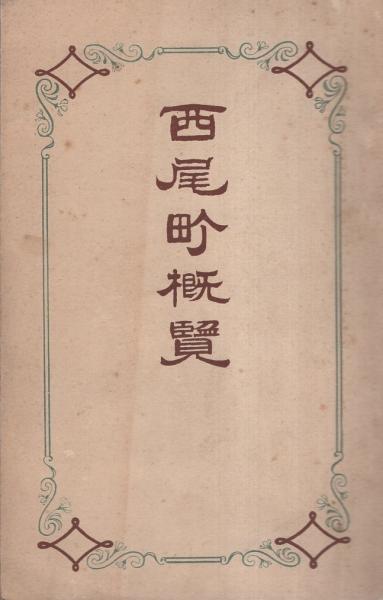 西尾町概覧